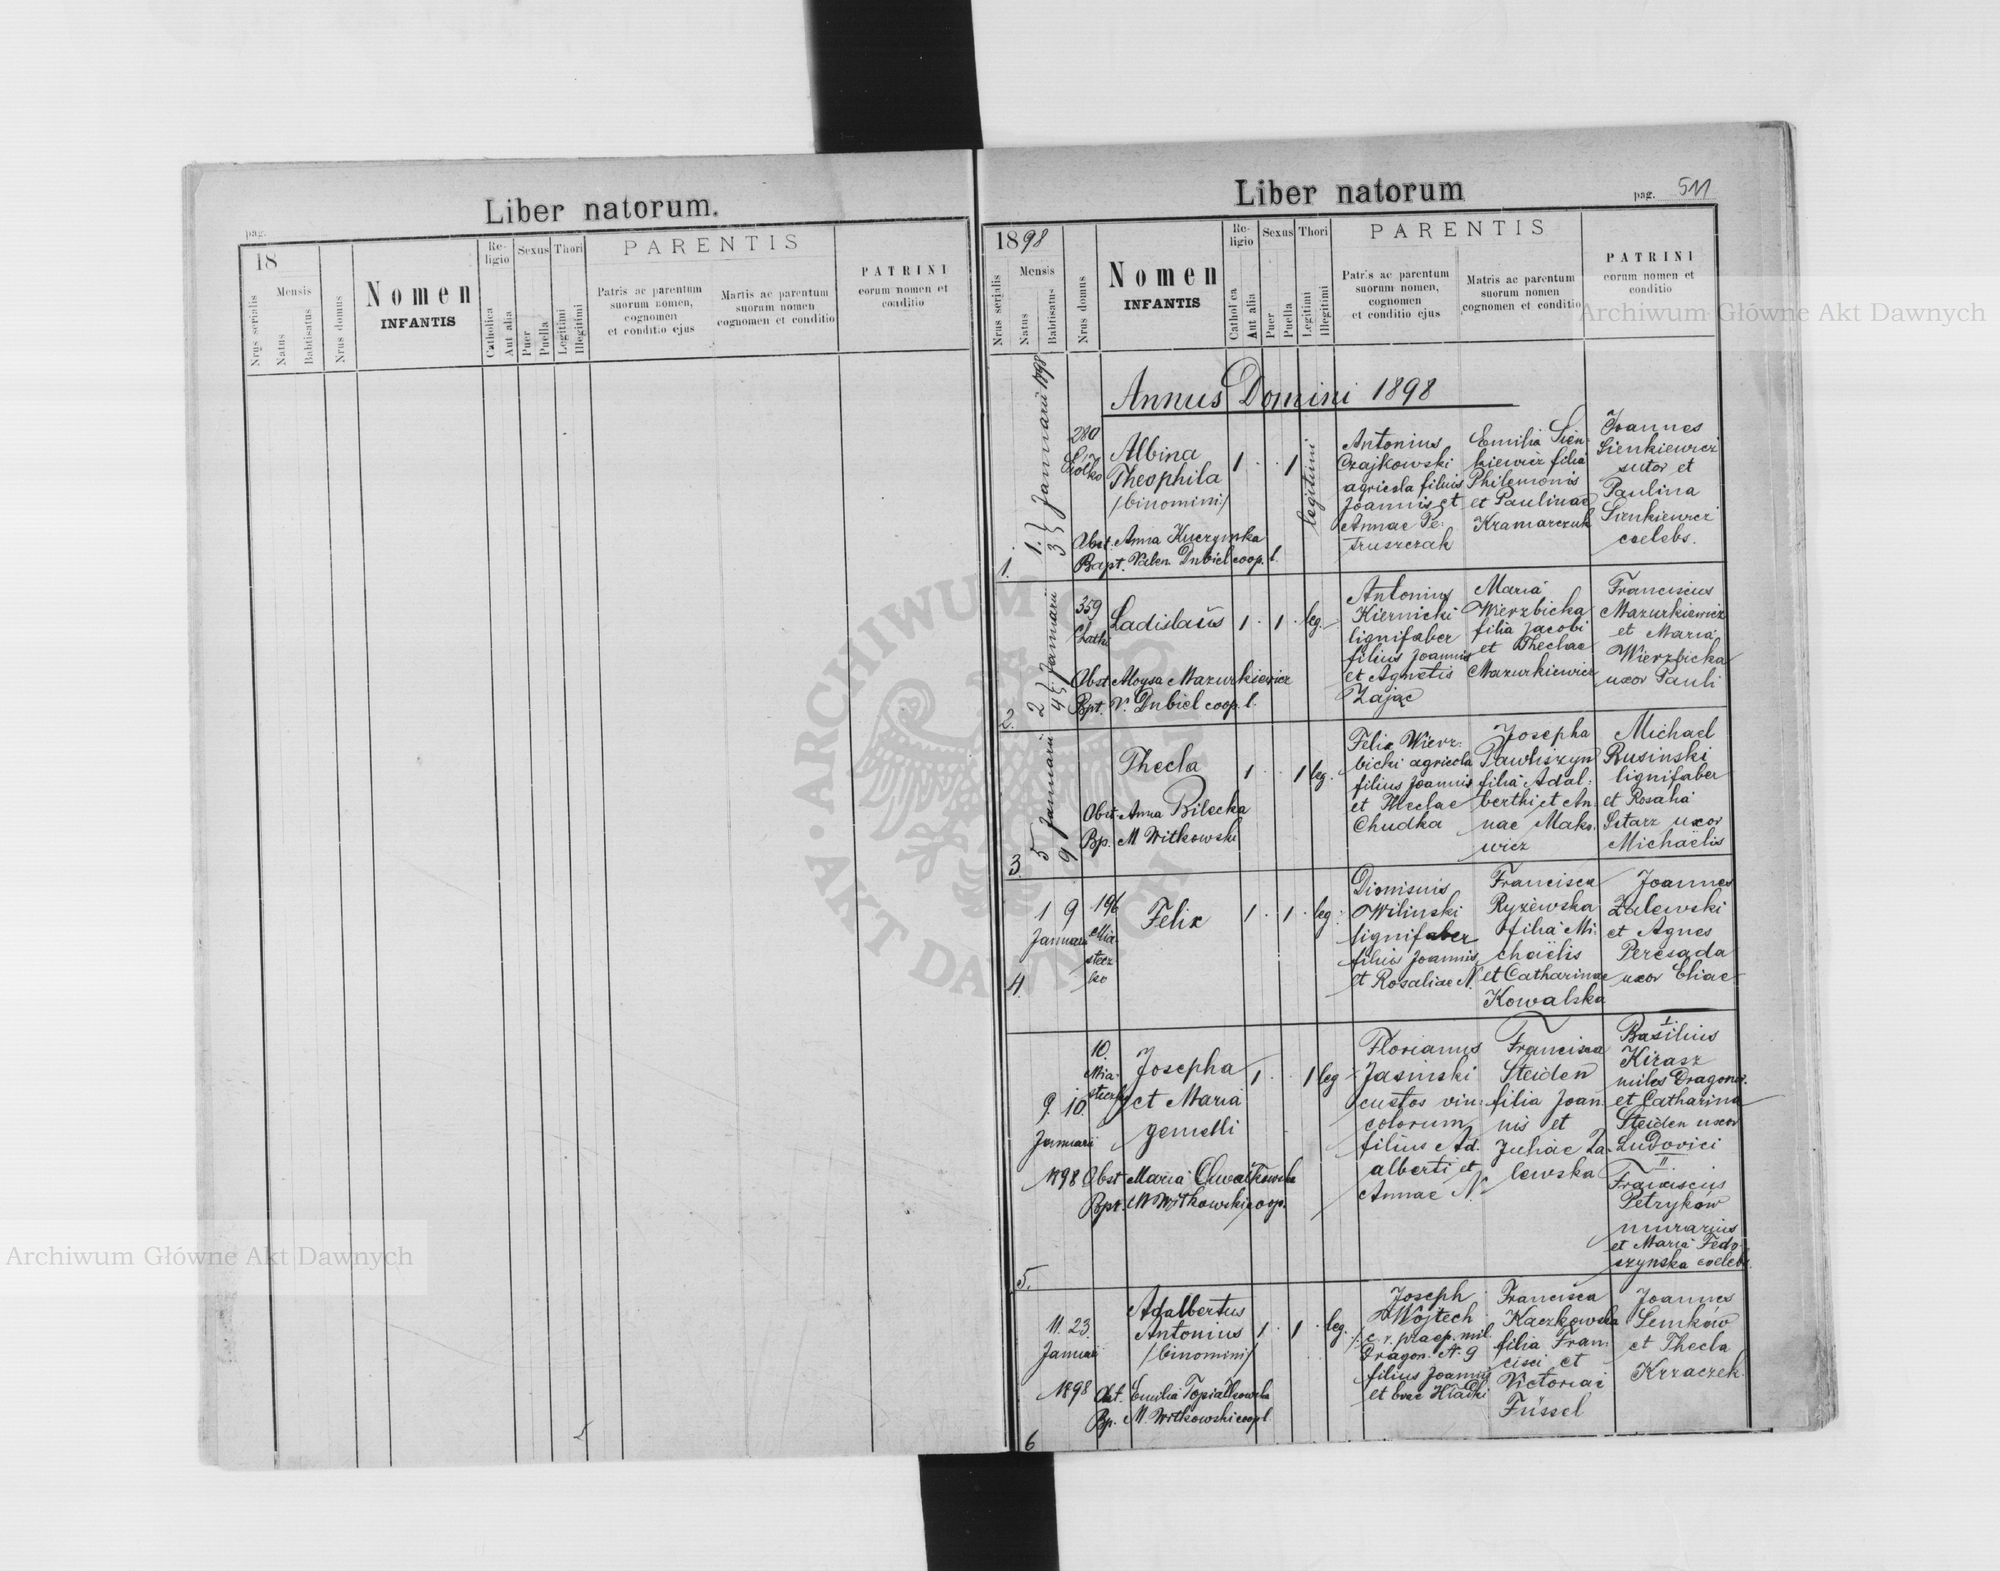 Liber natorum.
pag.
18
Nrus serialis
Mensis
Natus
Babtisatus
Nrus domus
Nomen
INFANTIS
Re-
ligio
Catholica
Aut alia
Sexus
Puer
Puella
Thori
Legitimi
Illegitimi
PARENTIS
Patris ac parentum
suorum nomen,
cognomen
et conditio ejus
Martis ac parentum
suorum nomen
cognomen et conditio
PATRINI
eorum nomen et
conditio
Liber natorum
pag. 511
1898
Nrus serialis
Mensis
Natus
Babtisatus
Nrus domus
Nomen
INFANTIS
Re-
ligio
Catholica
Aut alia
Sexus
Puer
Puella
Thori
Legitimi
Illegitimi
PARENTIS
Patris ac parentum
suorum nomen,
cognomen
et conditio ejus
Matris ac parentum
suorum nomen
cognomen et conditio
PATRINI
eorum nomen et
conditio
Annus Domini 1898
1.
1. 3 Januarii 1898
280
Albina
Theophila
/binomini/
Obst. Anna Kuczynka
Bapt. Valen. Dubiel coop. l.
1 1
legitimi
Antonius
Czajkowski
agricola filius
Joannis et
Annae Pe:
truszczak
Emilia Sien-
kiewicz filia
Philemonis
et Paulinae
Kramarczuk
Joannes
Sienkiewicz
sutor et
Paulina
Sienkiewicz
coelebs.
2.
2 4 Januarii
359
Ladislaus
Obst. Aloysa Mazurkiewicz
Bpt. V. Dubiel coop. l.
1 1 leg.
Antonius
Kiernicki
lignifaber
filius Joannis
et Agnetis
Zając
Maria
Wierzbicka
filia Jacobi
et Theclae
Mazurkiewicz
Franciscus
Mazurkiewicz
et Maria
Wierzbicka
uxor Pauli
3.
5 9 Januarii
Thecla
Obst. Anna Bilecka
Bp. M Witkowski
1 1 leg.
Felix Wierz-
bicki agricola
filius Joannis
et Theclae
Chudka
Josepha
Pawliszyn
filia Adal-
berthi et An-
nae Mako-
wicz
Michael
Rusinski
lignifaber
et Rosalia
Sitarz uxor
Michaëlis
4.
1 9
Januarii
196
Mia-
stecz
ko
Felix
1 1 leg.
Dionisius
Wilinski
lignifaber
filius Joannis
et Rosaliae N.
Francisca
Ryzewska
filia Mi-
chaëlis
et Catharinae
Kowalska
Joannes
Zalewski
et Agnes
Percsada
uxor Eliae
5.
9. 10.
Januarii
1898
10.
Mia-
steczko
Josepha
et Maria
gemelli
Obst Maria
Bpt. M Witkowski coop.
1 1 leg
Florianus
Jasinski
custos vin-
colorum
filius Ad-
alberti et
Annae N.
Francisca
Steiden
filia Joan-
nis et
Juliae Za-
lewska
I.
Basilius
Kirasz
miles Dragonor.
et Catharina
Steiden uxor
Ludovici
II
Franciscus
Petryków
murarius
et Maria Fedo-
szynska coelebs.
6
11. 23.
Januarii
1898
Adalbertus
Antonius
/binomini/
Obst. Emilia Topialkowska
Bp. M. Witkowski coop l
1 1 leg.
Joseph
Wojtech
c. r. praep. mil.
Dragon. N. 9
filius Joannis
et Evae Hladki
Francisca
Kaczkowska
filia Fran-
cisci et
Victoriae
Füssel
Joannes
Semków
et Thecla
Krzaczek
Archiwum Główne Akt Dawnych
Archiwum Główne Akt Dawnych
ARCHIWUM GŁÓWNE AKT DAWNYCH